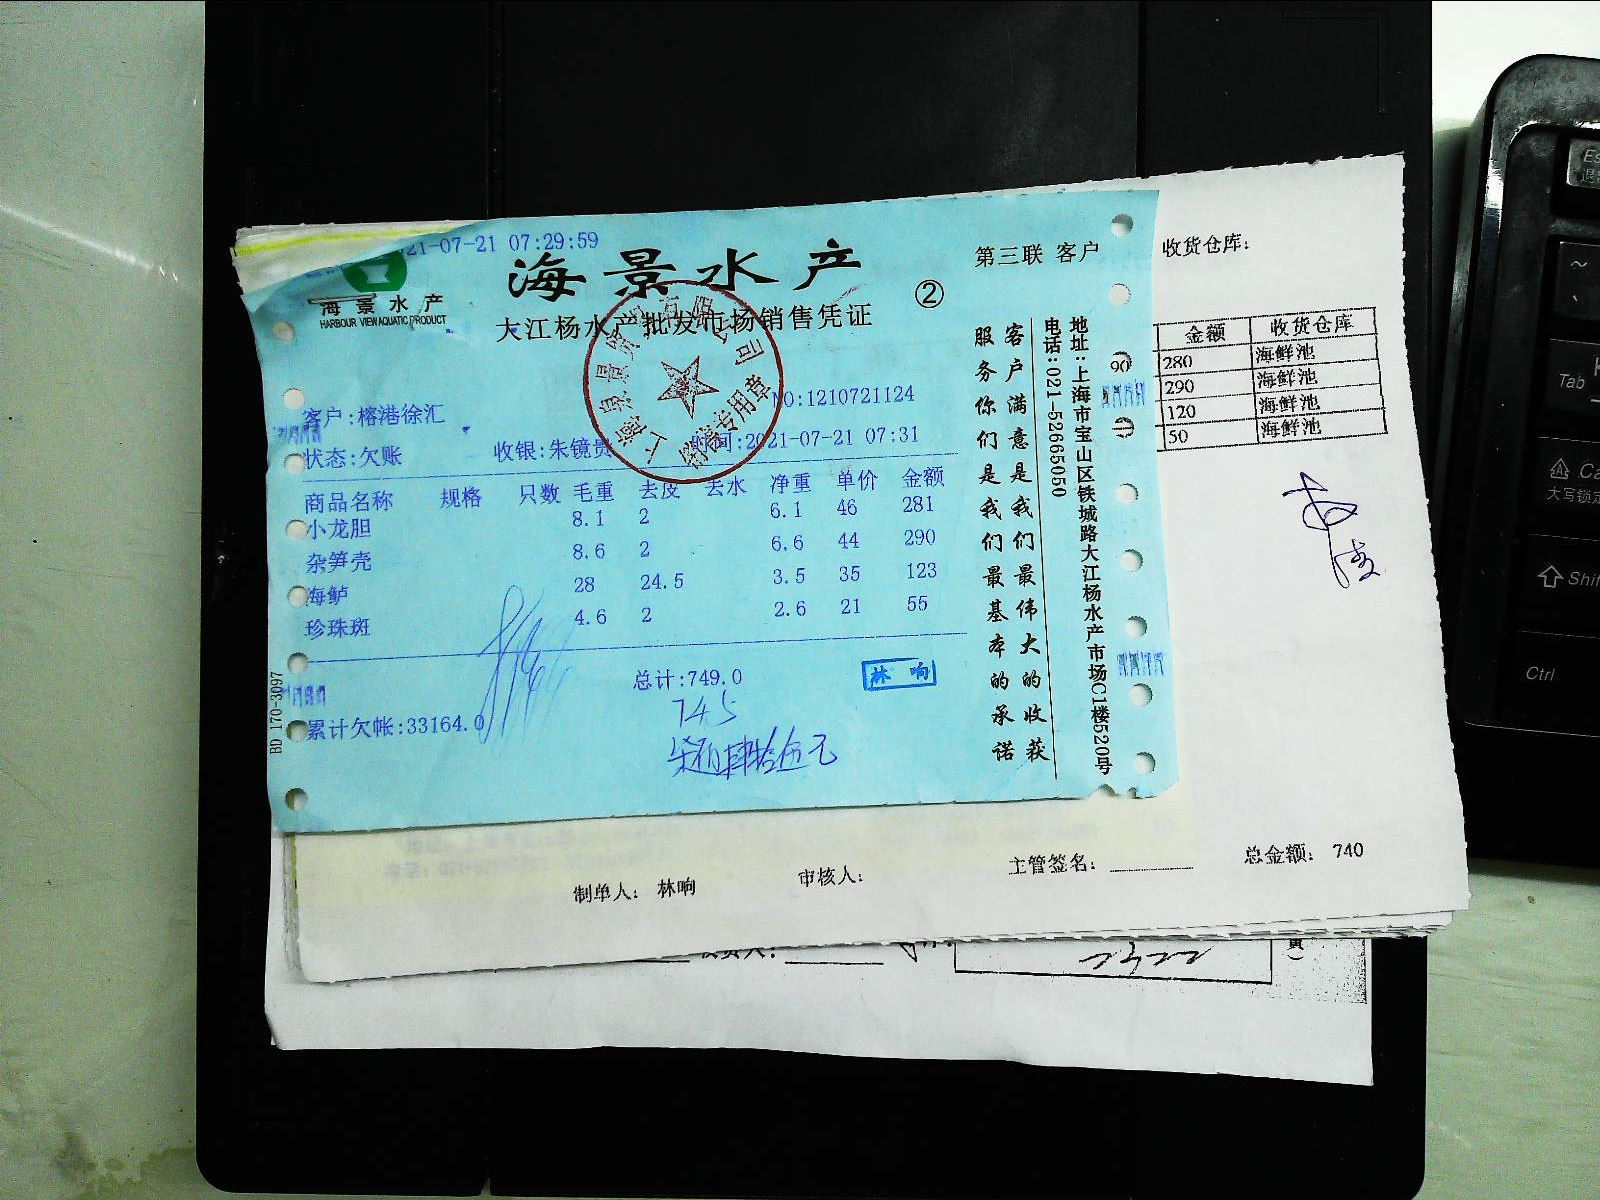 21-07-21 07:29:59
海景水产
第三联 客户
②
海景水产
HARBOUR VIEW AQUATIC PRODUCT
大江杨水产批发市场销售凭证
销售专用章
NO:1210721124
客户:榕港徐汇
状态:欠账
收银:朱镜贵
时间:2021-07-21 07:31
商品名称 规格 只数 毛重 去皮 去水 净重 单价 金额
小龙胆 8.1 2 6.1 46 281
杂笋壳 8.6 2 6.6 44 290
海鲈 28 24.5 3.5 35 123
珍珠斑 4.6 2 2.6 21 55
总计:749.0
林响
745
柒佰肆拾伍元
累计欠帐:33164.0
BD 170-3097
客户满意是我们最伟大的收获
服务你们是我们最基本的承诺
地址:上海市宝山区铁城路大江杨水产市场C1楼520号
电话:021-52665050
收货仓库:
金额 收货仓库
90
280 海鲜池
290 海鲜池
120 海鲜池
50 海鲜池
制单人: 林响
审核人:
主管签名:
总金额: 740
Esc
Tab
Ca
大写锁定
Shift
Ctrl